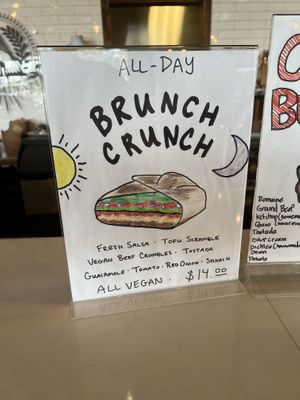 ALL-DAY
BRUNCH
CRUNCH
FRESH SALSA · TOFU SCRAMBLE
VEGAN BEEF CRUMBLES · TOSTADA
GUACAMOLE · TOMATO · RED ONION · SPINACH
ALL VEGAN · $14.00
Romaine
Ground Beef
Ketchup
Queso
Tostada
Sour Cream
Onion
Tomato